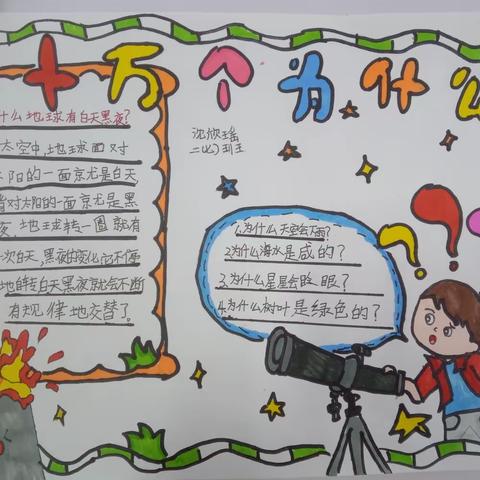 十万个为什么
什么地球有白天黑夜?
太空中,地球面对
太阳的一面就是白天
背对太阳的一面就是黑
夜,地球转一圈就有
一次白天,黑夜的变化它不停
地自转白天黑夜就会不断
有规律地交替了。
沈欣瑶
二(2)班
1.为什么天空会下雨?
2.为什么海水是咸的?
3.为什么星星会眨眼?
4.为什么树叶是绿色的?